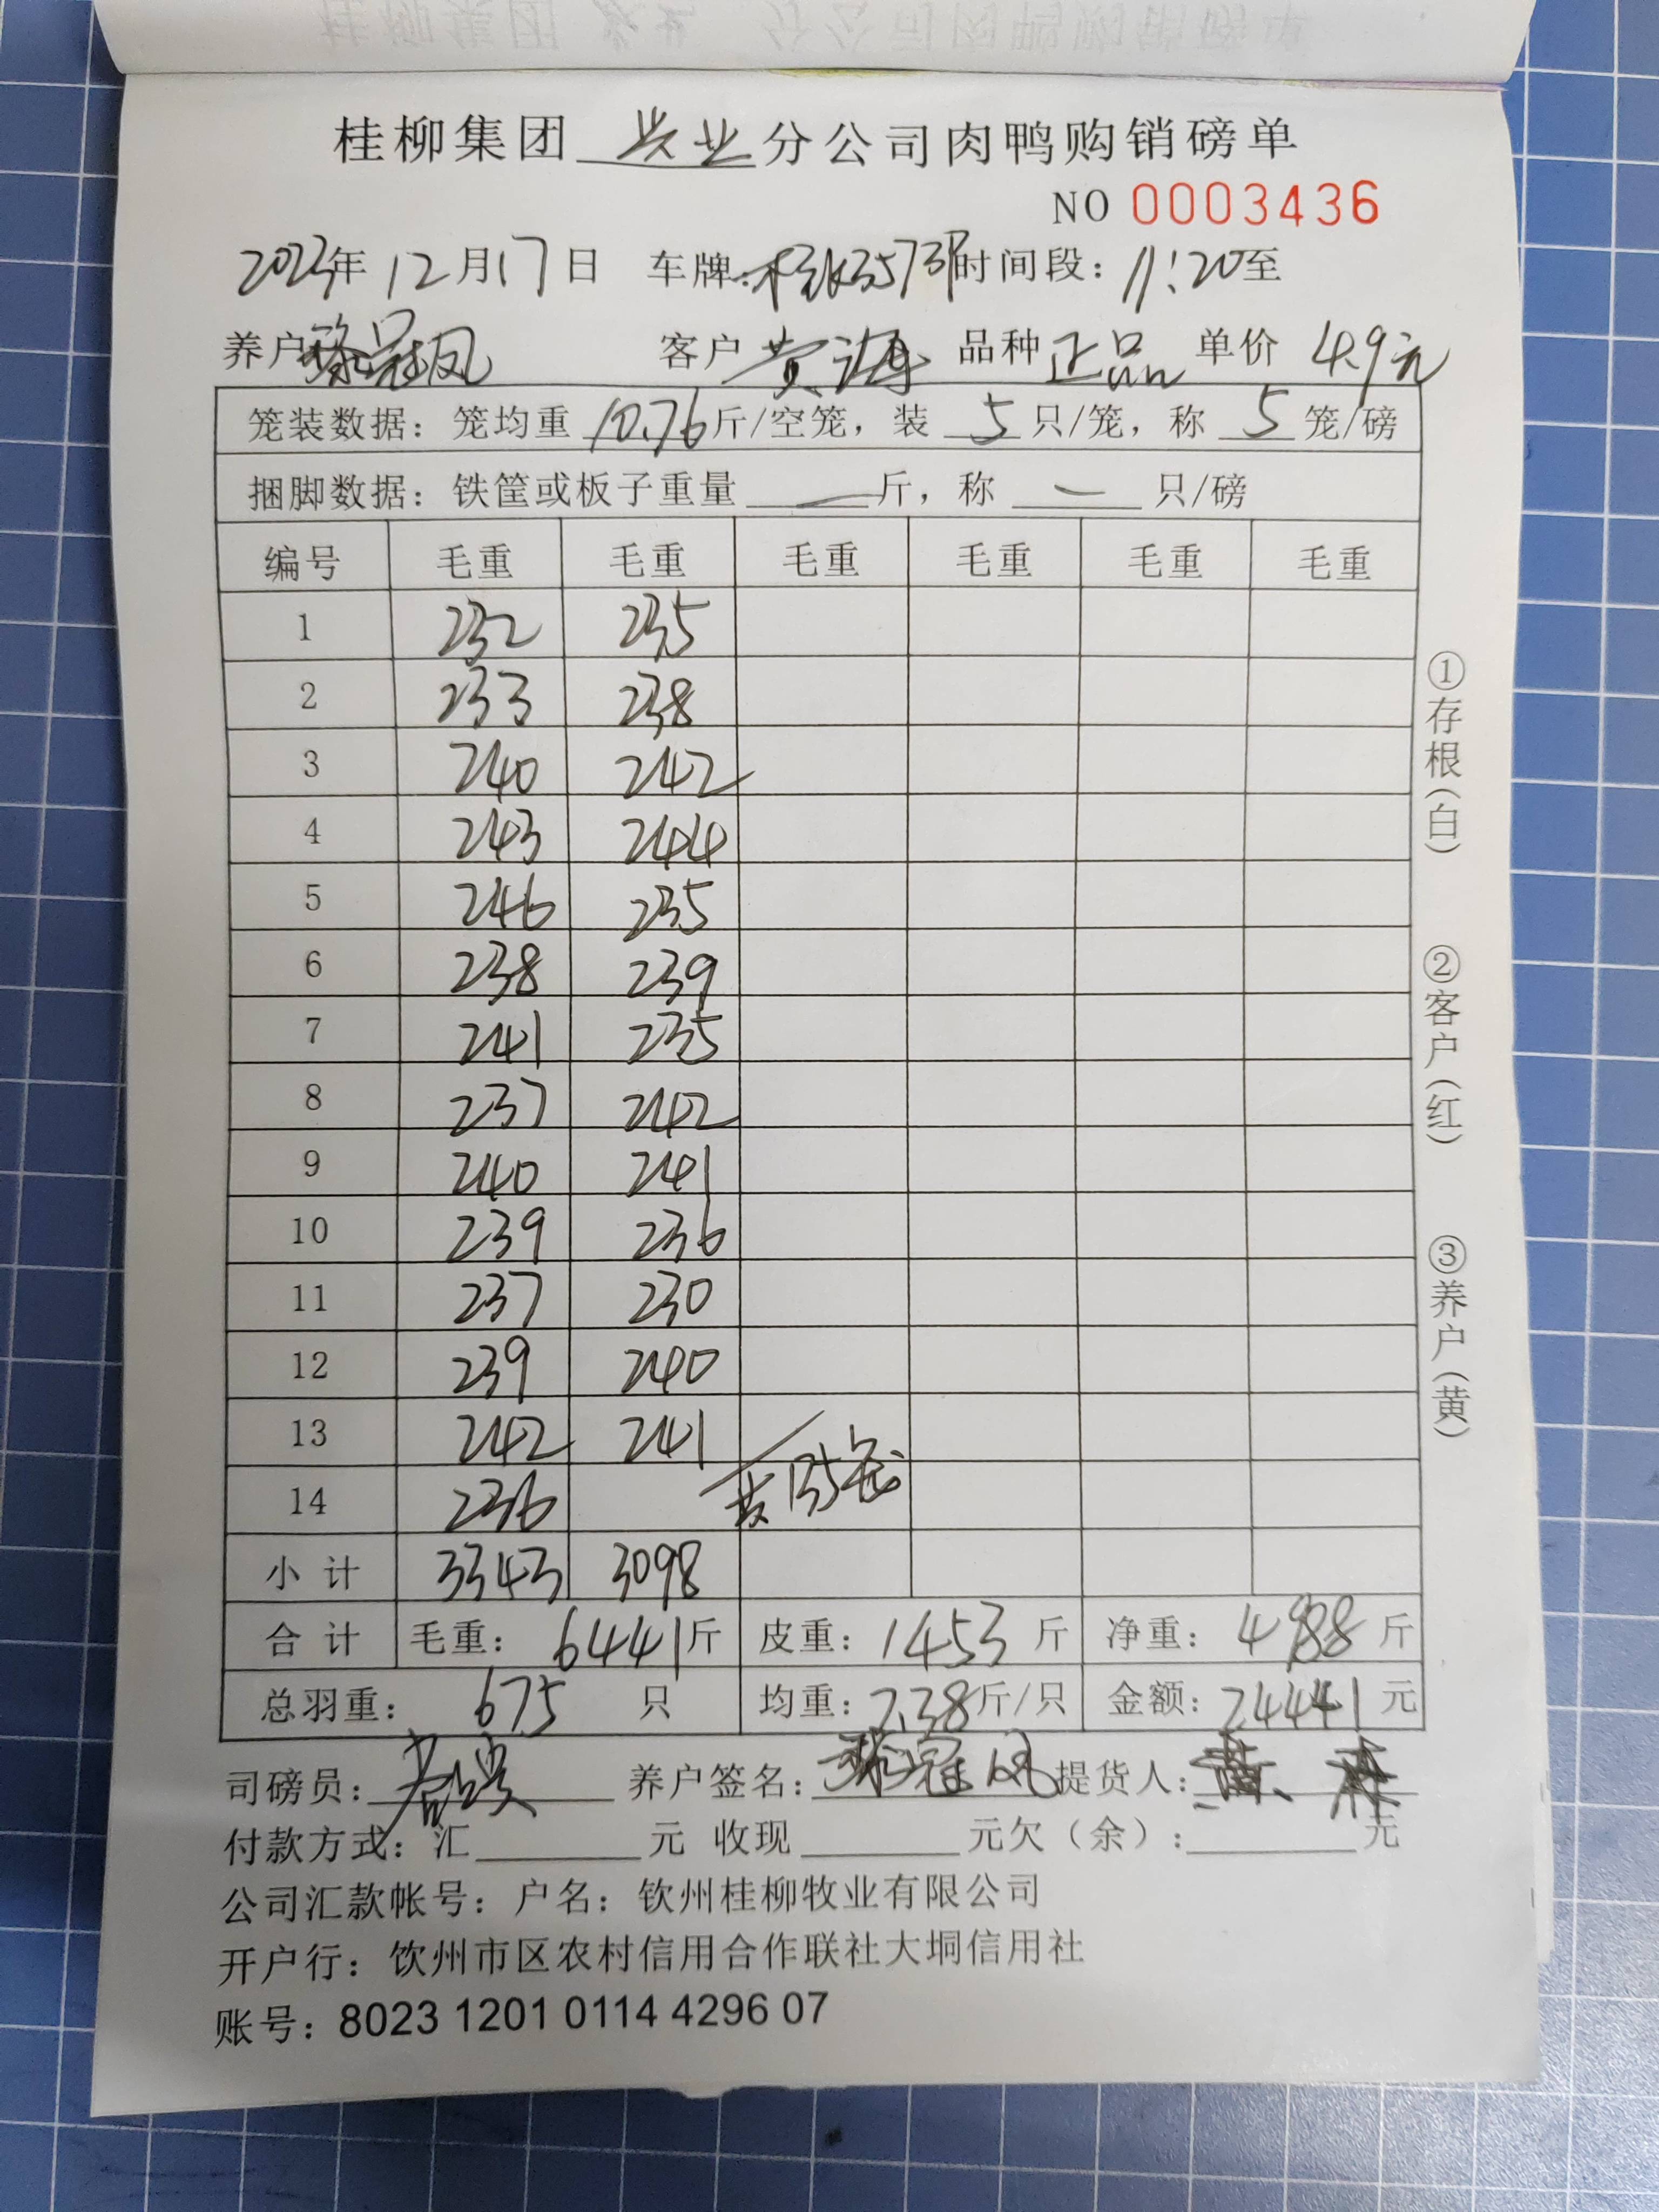 桂柳集团 兴业 分公司肉鸭购销磅单
NO 0003436
2023年 12月17日 车牌: 时间段: 11:20至
养户 冠凤 客户 黄海 品种 正品 单价 4.9元
笼装数据: 笼均重 10.76斤/空笼, 装 5 只/笼, 称 5 笼/磅
捆脚数据: 铁筐或板子重量 — 斤, 称 — 只/磅
编号 毛重 毛重 毛重 毛重 毛重 毛重
1 232 235
2 233 238
3 240 242
4 243 244
5 246 235
6 238 239
7 241 235
8 237 242
9 240 241
10 239 236
11 237 230
12 239 240
13 242 241
14 236 共135笼
小计 3343 3098
合计 毛重: 6441斤 皮重: 1453 斤 净重: 4988 斤
总羽重: 675 只 均重: 7.38斤/只 金额: 24441 元
司磅员: 养户签名: 冠凤 提货人: 黄
付款方式: 汇 元 收现 元欠(余): 元
公司汇款帐号: 户名: 钦州桂柳牧业有限公司
开户行: 钦州市区农村信用合作联社大垌信用社
账号: 8023 1201 0114 4296 07
①存根(白)
②客户(红)
③养户(黄)